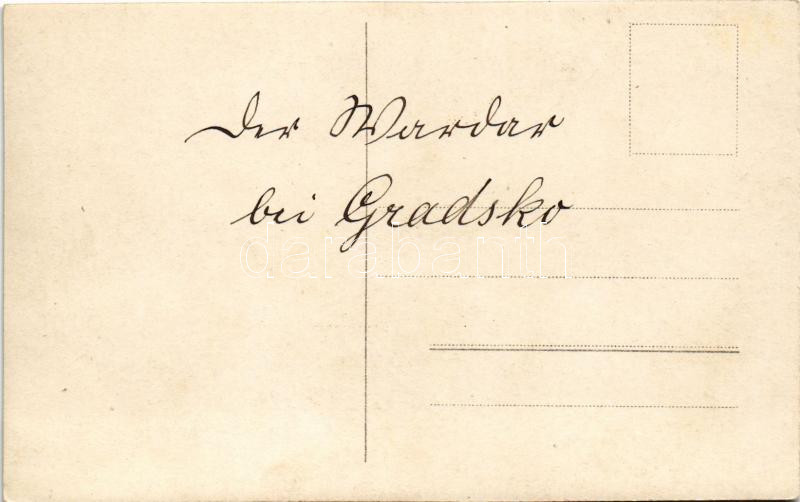 Der Wardar
bei Gradsko
darabanth